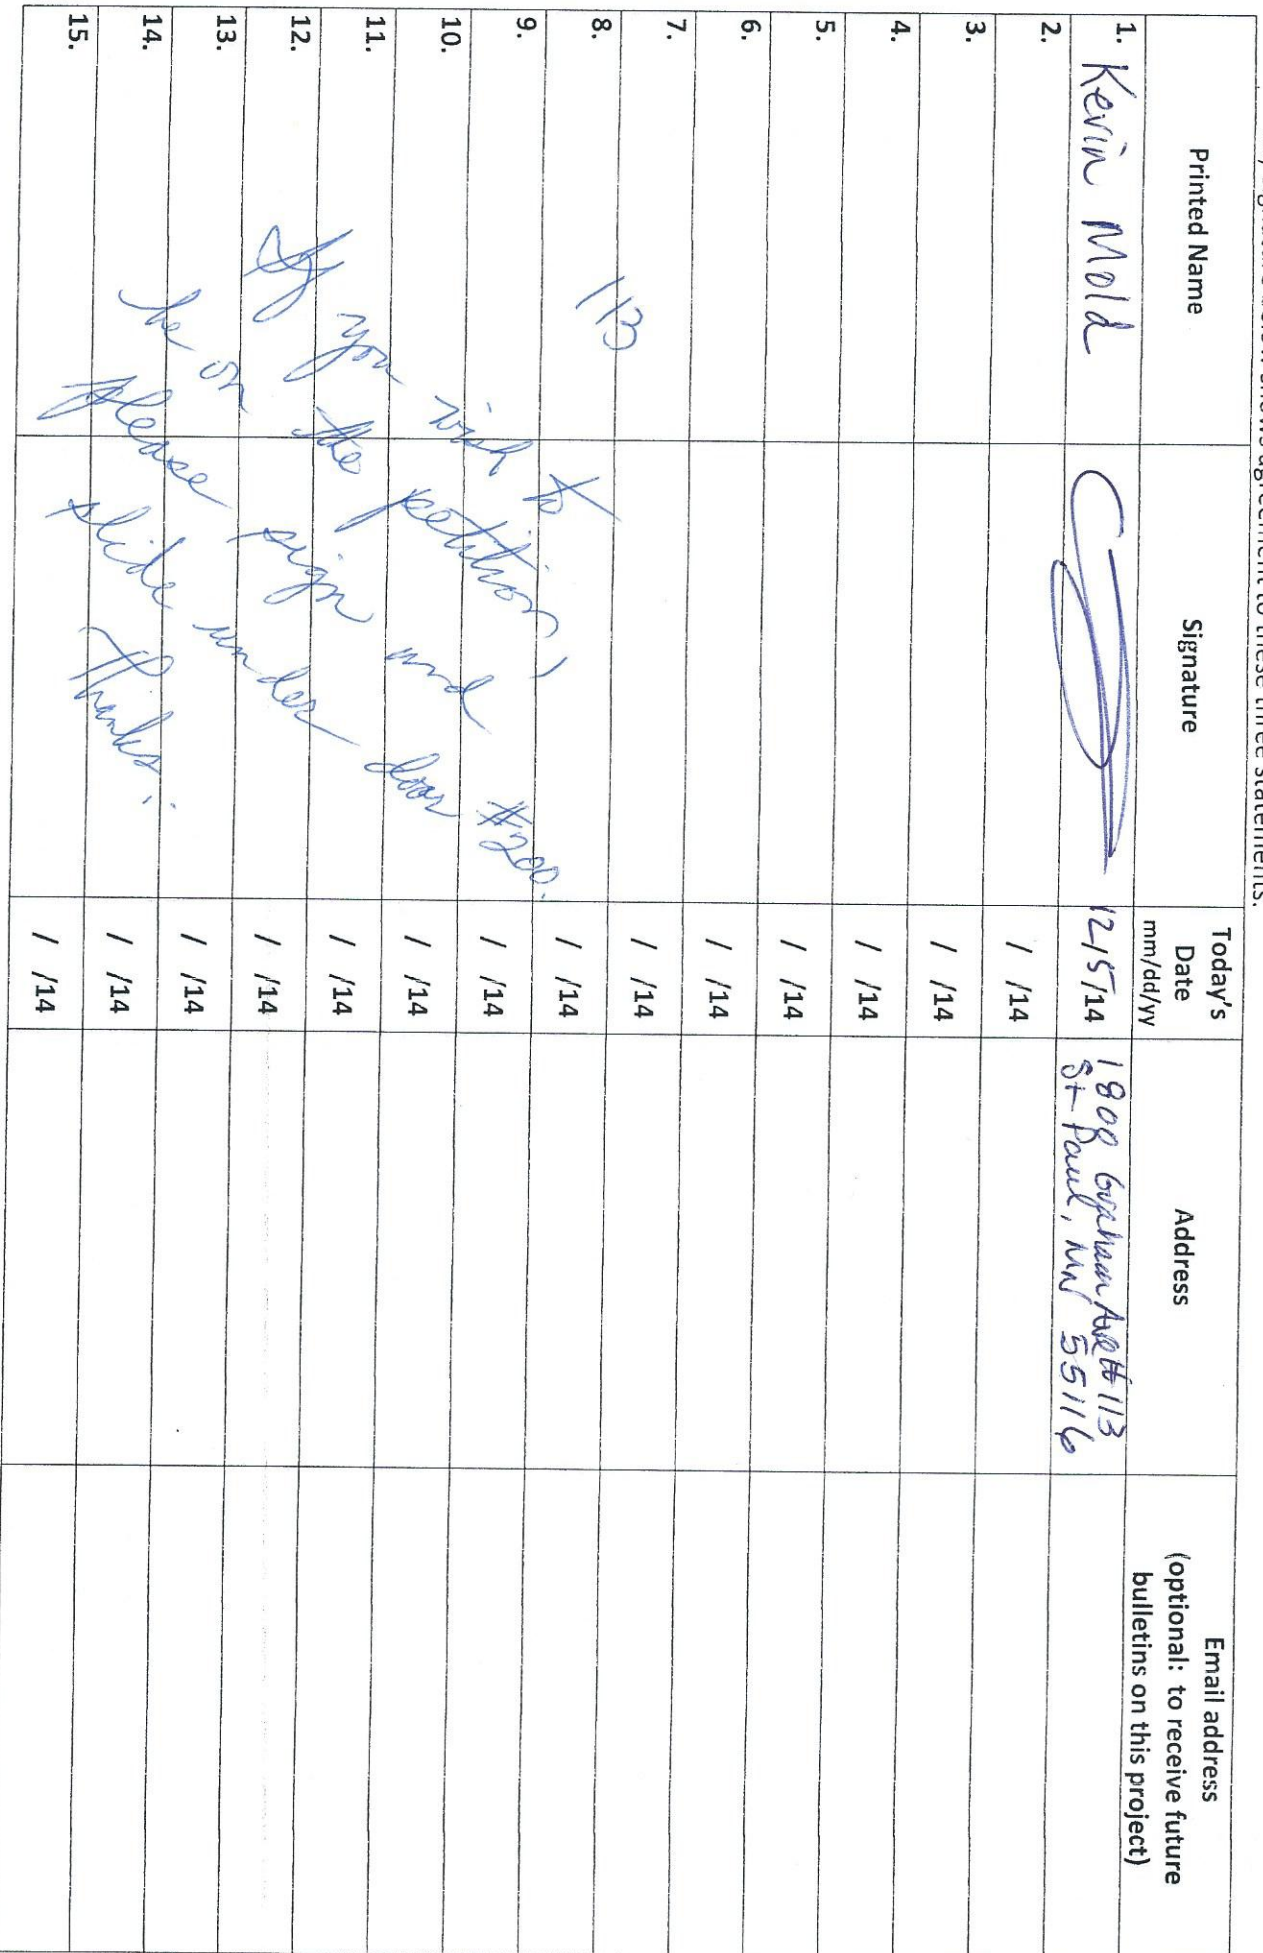 signature below shows agreement to these three statements.
Printed Name
Signature
Today's
Date
mm/dd/yy
Address
Email address
(optional: to receive future
bulletins on this project)
1. Kevin Mold 12/5/14 1808 Graham Ave #113
St Paul, MN 55116
2. / /14
3. / /14
4. / /14
5. / /14
6. / /14
7. / /14
8. / /14
9. / /14
10. / /14
11. / /14
12. / /14
13. / /14
14. / /14
15. / /14
113
If you wish to
be on the petition,
please sign and
slide under door #200.
Thanks!